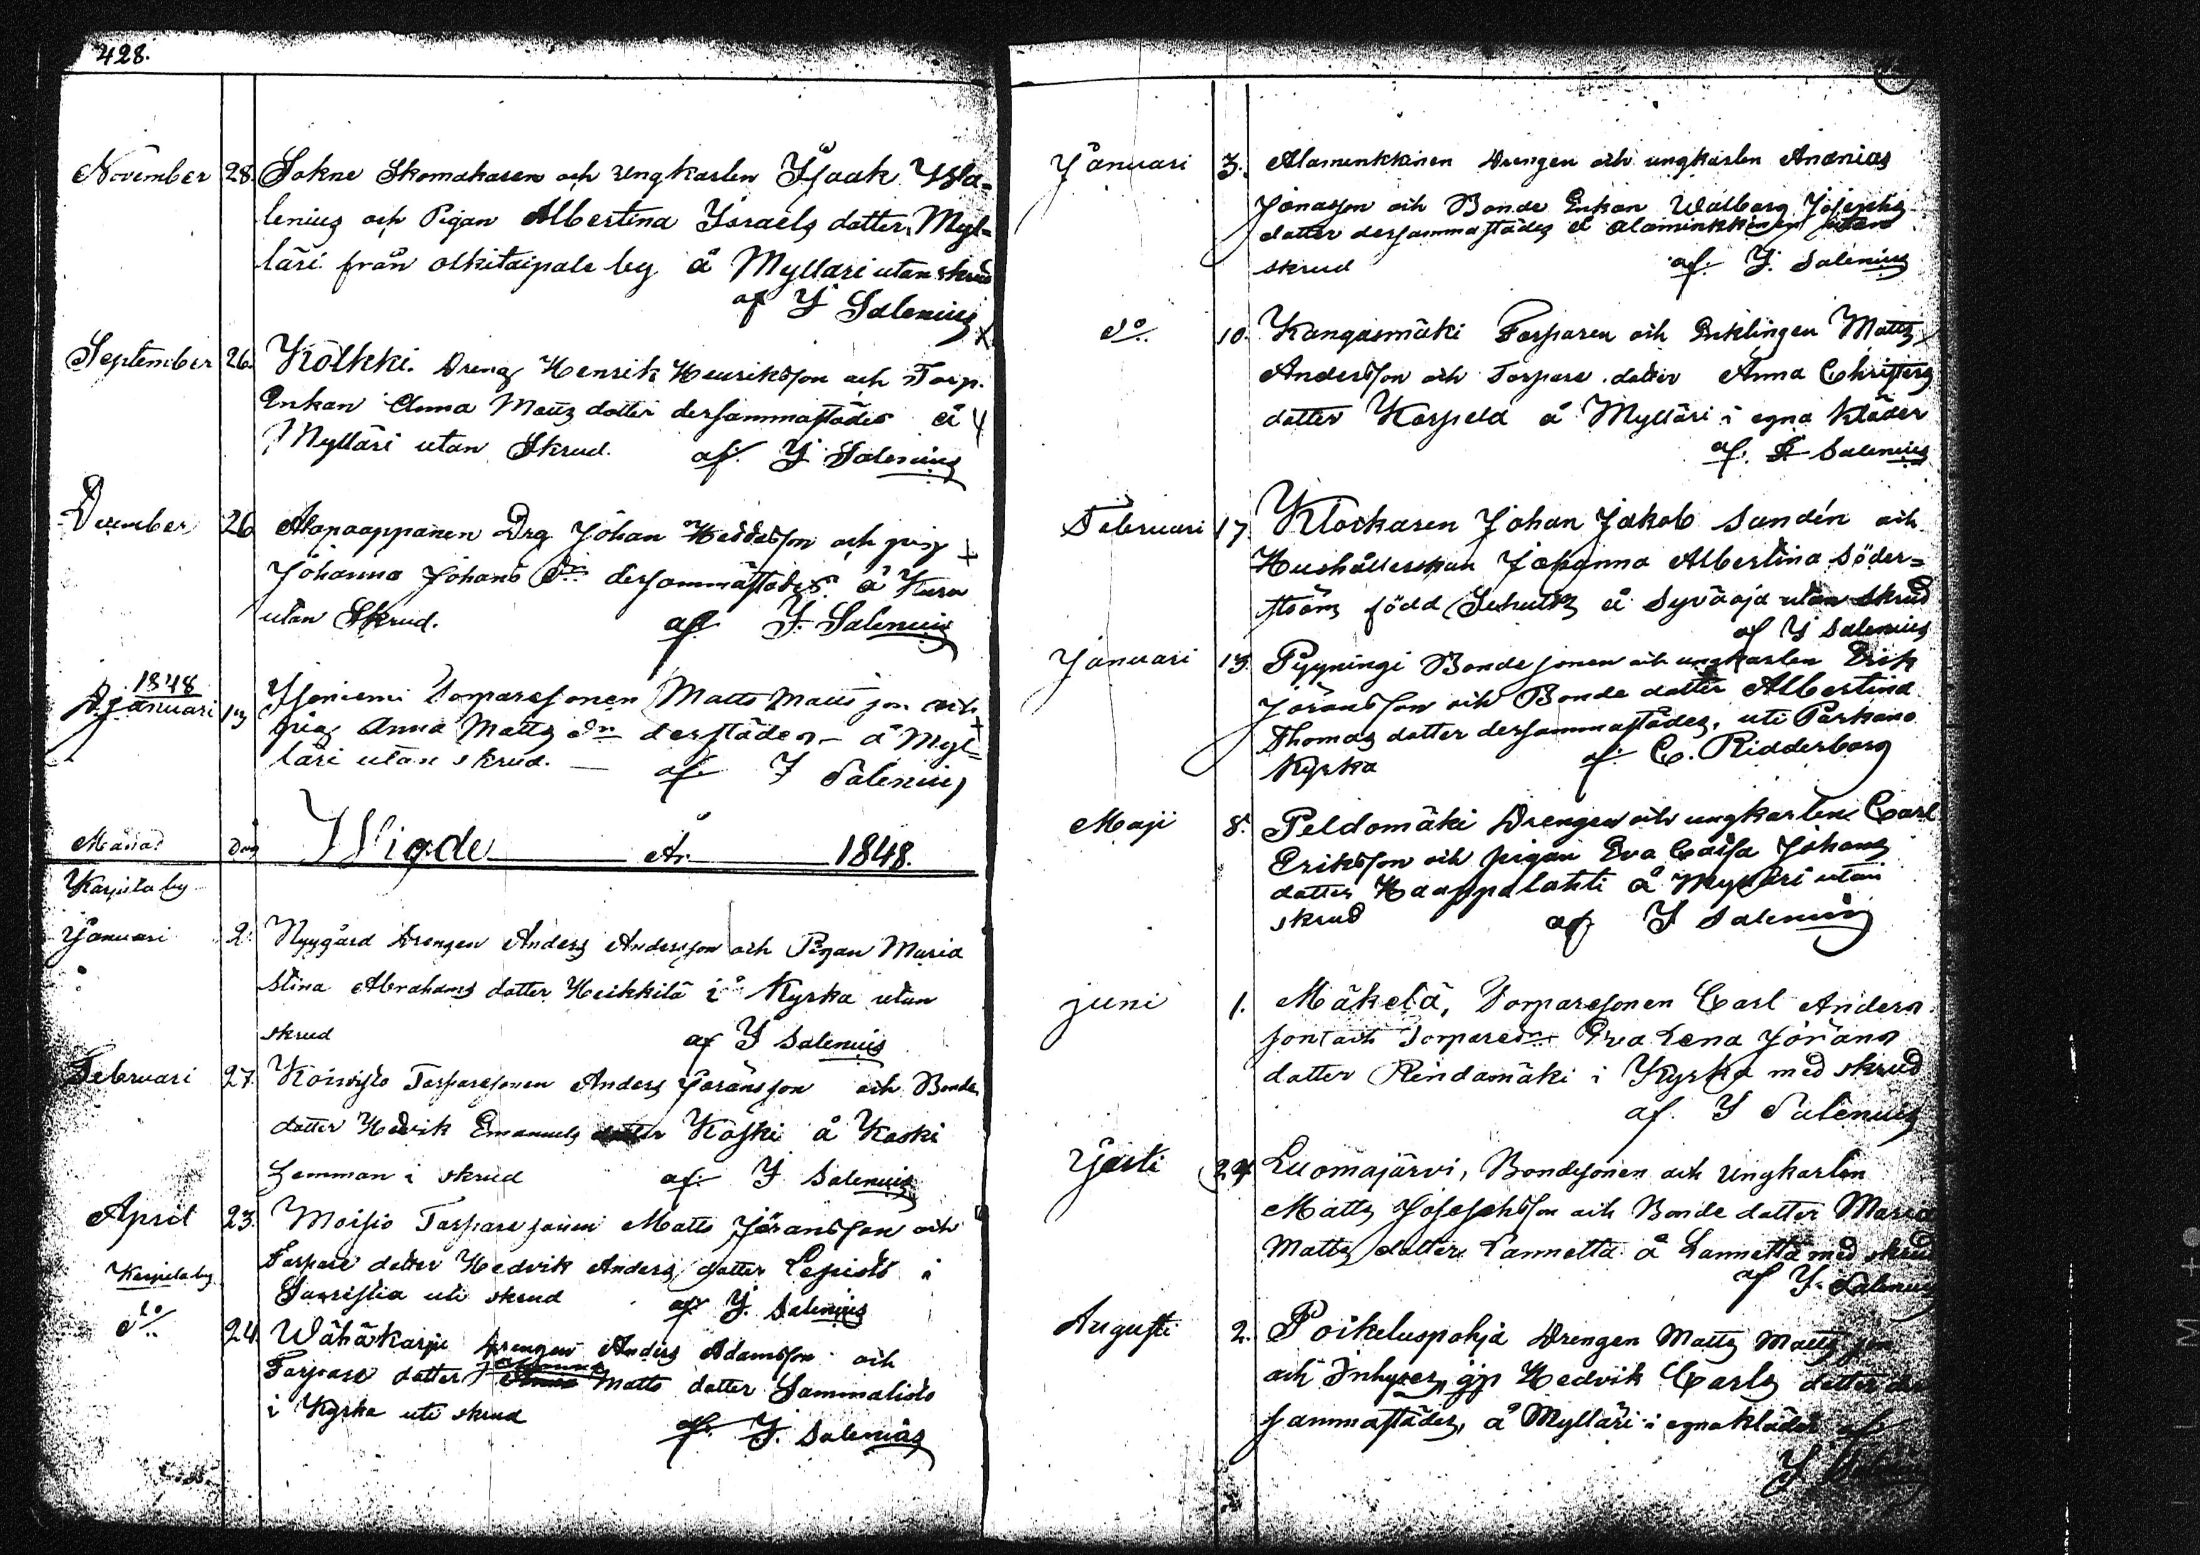 428.
November 28. Sokne Skomakaren och ungkarlen Isaak Ysla-
lenius och Pigan Albertina Israels dotter Myl-
läri från olkitaipale by å Mylläri utan skrud
af Y Salenius
September 26. Kölkki. Dreng Henrik Henriksson och Torp.
Enkan Anna Matts dotter dersammastädes å
Mylläri utan Skrud. af Y Salenius
December 26 Alapaappanen Drg Johan Heddasson och pig
Johanna Johans dr dersammastädes å Kuru
utan Skrud. af Y. Salenius
1848
Januari Isoniemi Torparesonen Matts Matts son och
pig Anna Matts dr derstädes å Myl-
läri utan skrud. af Y Salenius
Månad Dag Wigde År 1848.
Karpila by
Januari 2. Nygård drengen Anders Andersson och Pigan Maria
Stina Abrahams dotter Heikkilä i Kyrka utan
skrud af Y Salenius
Februari 27. Koivisto Torparesonen Anders Göransson och Bonde
dotter Hedvik Emanuels dotter Koski å Koski
Hemman i skrud af Y Salenius
April 23. Moisio Torpare sonen Matts Jöransson och
Torpare dotter Hedvik Anders dotter Lepistö i
uti skrud af Y. Salenius
Karpila by
do 24. Wähäkarpi drengen Anders Adamsson och
Torpare dotter Johanna Matts dotter Sammalisto
i Kyrka uti skrud af Y. Salenius
Januari 3. Alaminkkinen Drengen och ungkarlen Ananias
Jonasson och Bonde Enkan Walborg Josephs
dotter dersammastädes å alaminkkinen utan
skrud af Y. Salenius
do 10. Kangasmäki Torparen och Enklingen Matts
Andersson och Torpare dotter Anna Christers
dotter Karpela å Mylläri i egna kläder
af. Salenius
Februari 17. Klockaren Johan Jakob Sundén och
Hushållerskan Johanna Albertina Söder-
ström född Schultz å Syväoja utan skrud
af Y Salenius
Januari 13. Pyyningi Bonde sonen och ungkarlen Erik
Jöransson och Bonde dotter Albertina
Thomas dotter dersammastädes, uti Parkano
Kyrka af C. Ridderborg
Maji 8. Peldomäki Drengen och ungkarlen Carl
Eriksson och pigan Eva Caisa Johans
dotter Haappalahti å Mylläri utan
skrud af Y Salenius
juni 1. Mäkelä, Torparesonen Carl Anders
son och Torpare dr Eva Lena Jörans
dotter Rindamäki i Kyrka med skrud
af. Y Salenius
Juli 24 Luomajärvi, Bondesonen och Ungkarlen
Matts Josephsson och Bonde dotter Maria
Matts dotter Lannettä å Lannettä med skrud
af Y. Salenius
Augusti 2. Poikeluspohja Drengen Matts Matts son
och Inhyses Hedvik Carls dotter der
sammastädes, å Mylläri i egna kläder af
Y